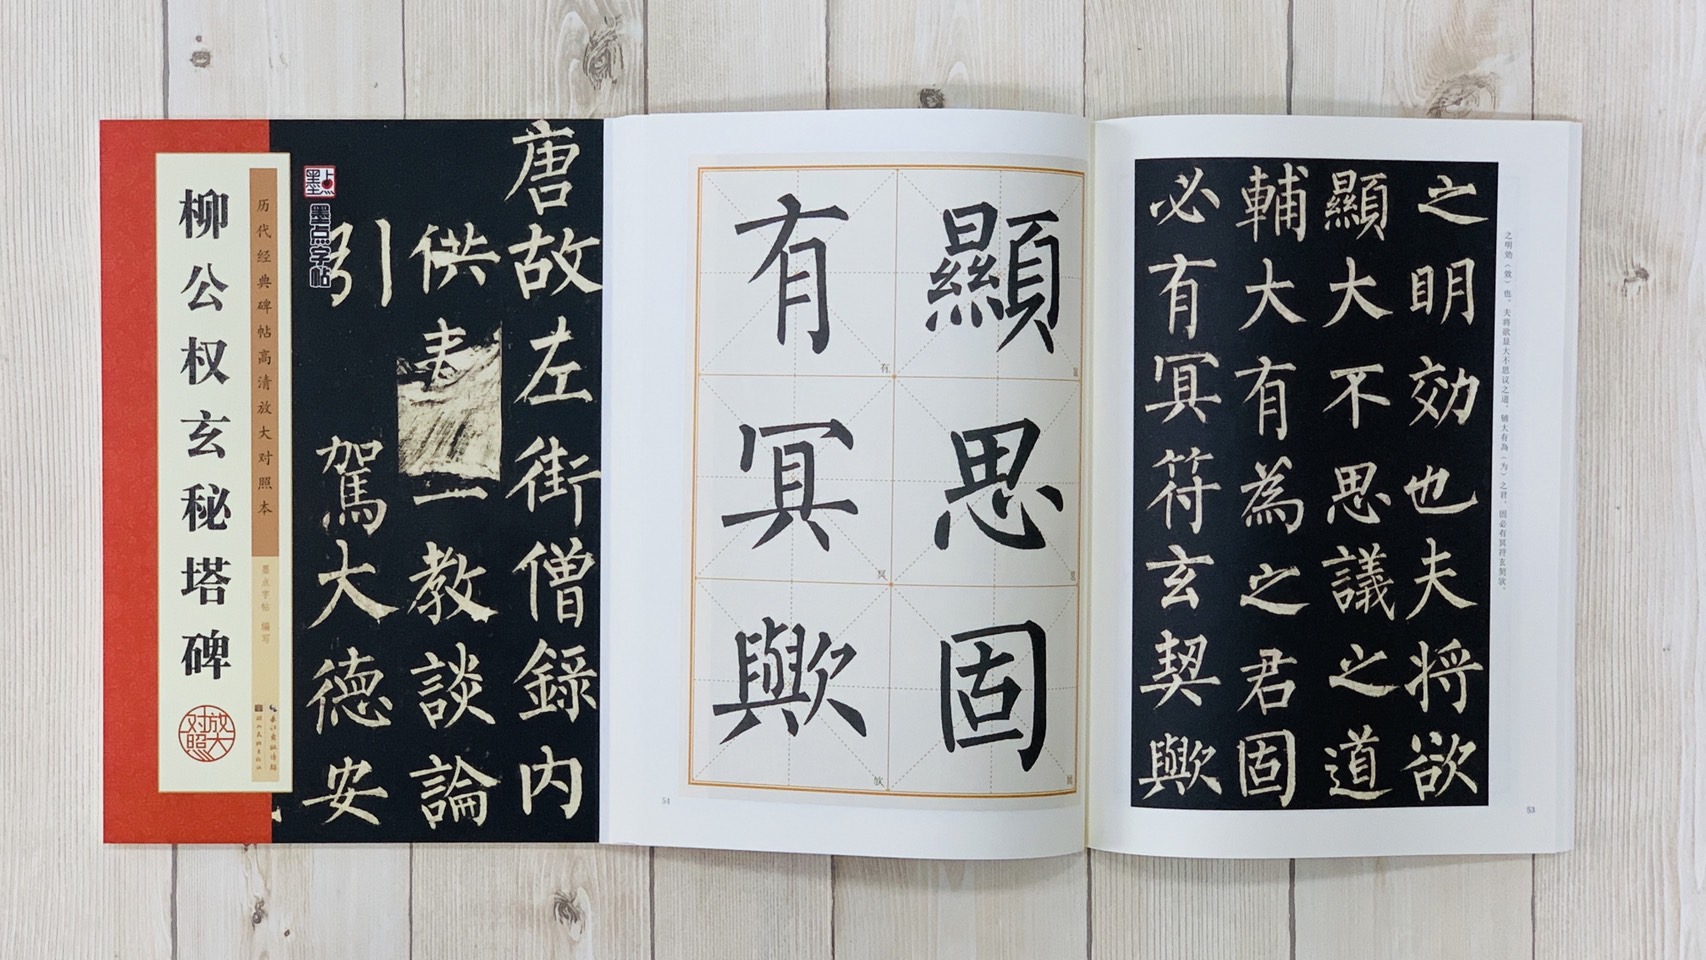 柳公权玄秘塔碑
历代经典碑帖高清放大对照本
墨点字帖 编写
放大对照
墨点
墨点字帖
唐故左街僧録内
供奉
一教談論
引
駕大德安
顯思固
有冥歟
54
之明効也夫将欲
顯大不思議之道
輔大有為之君固
必有冥符玄契歟
之明効（效）也。夫将欲显大不思议之道，辅大有為（为）之君，固必有冥符玄契欤。
53